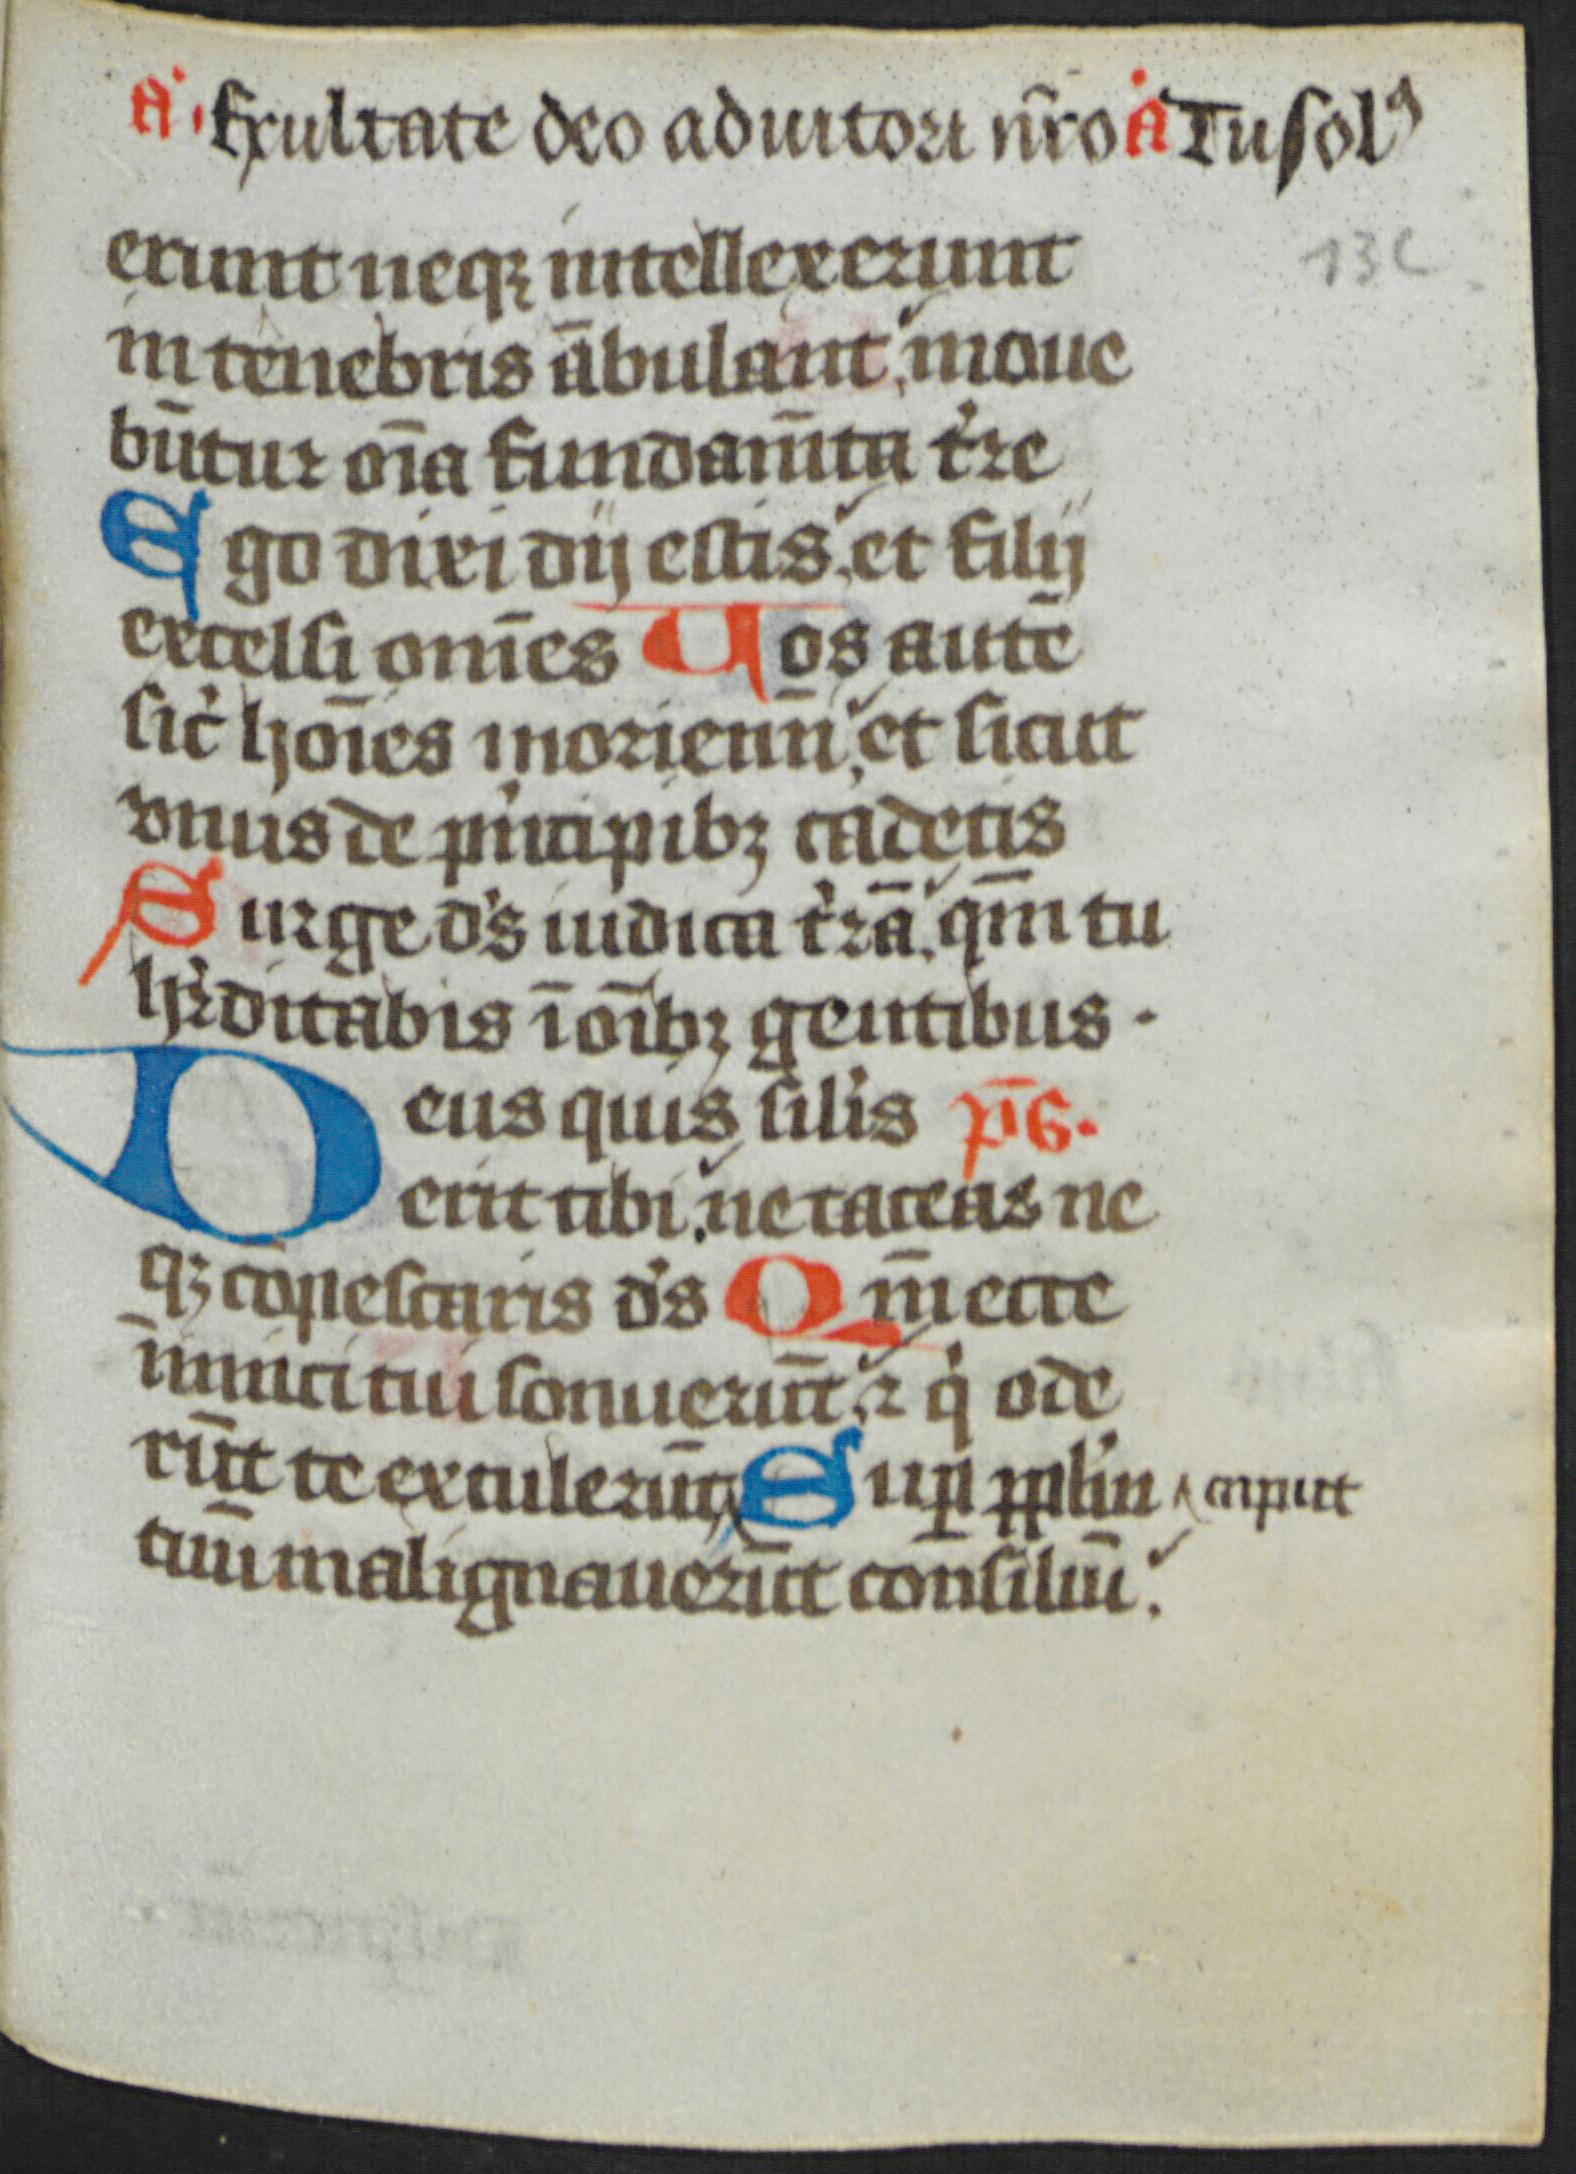 A. Exultate deo adiutori nr̄o A Tu solꝰ
13c
erunt neqꝫ intellexerunt
in tenebris ābulant, moue
būtur oīa fundam̄ta t're
Ego dixi dij estis, et filij
excelsi om̄es Uos autē
sic' hoīes moriemī, et sicut
vnus de p'ncipibꝫ cadetis
Surge d's iudica t'rā, qm̄ tu
h'ditabis ī oībꝫ gentibus.
Deus quis sil'is p̄s.
erit tibi, ne taceas ne
qꝫ cōpescaris d's Qm̄ ecce
inimici tui sonuerūt, ⁊ q' ode
rūt te extulerūt Suꝑ pp̄l'm
tuū malignauerūt consiliū.
caput